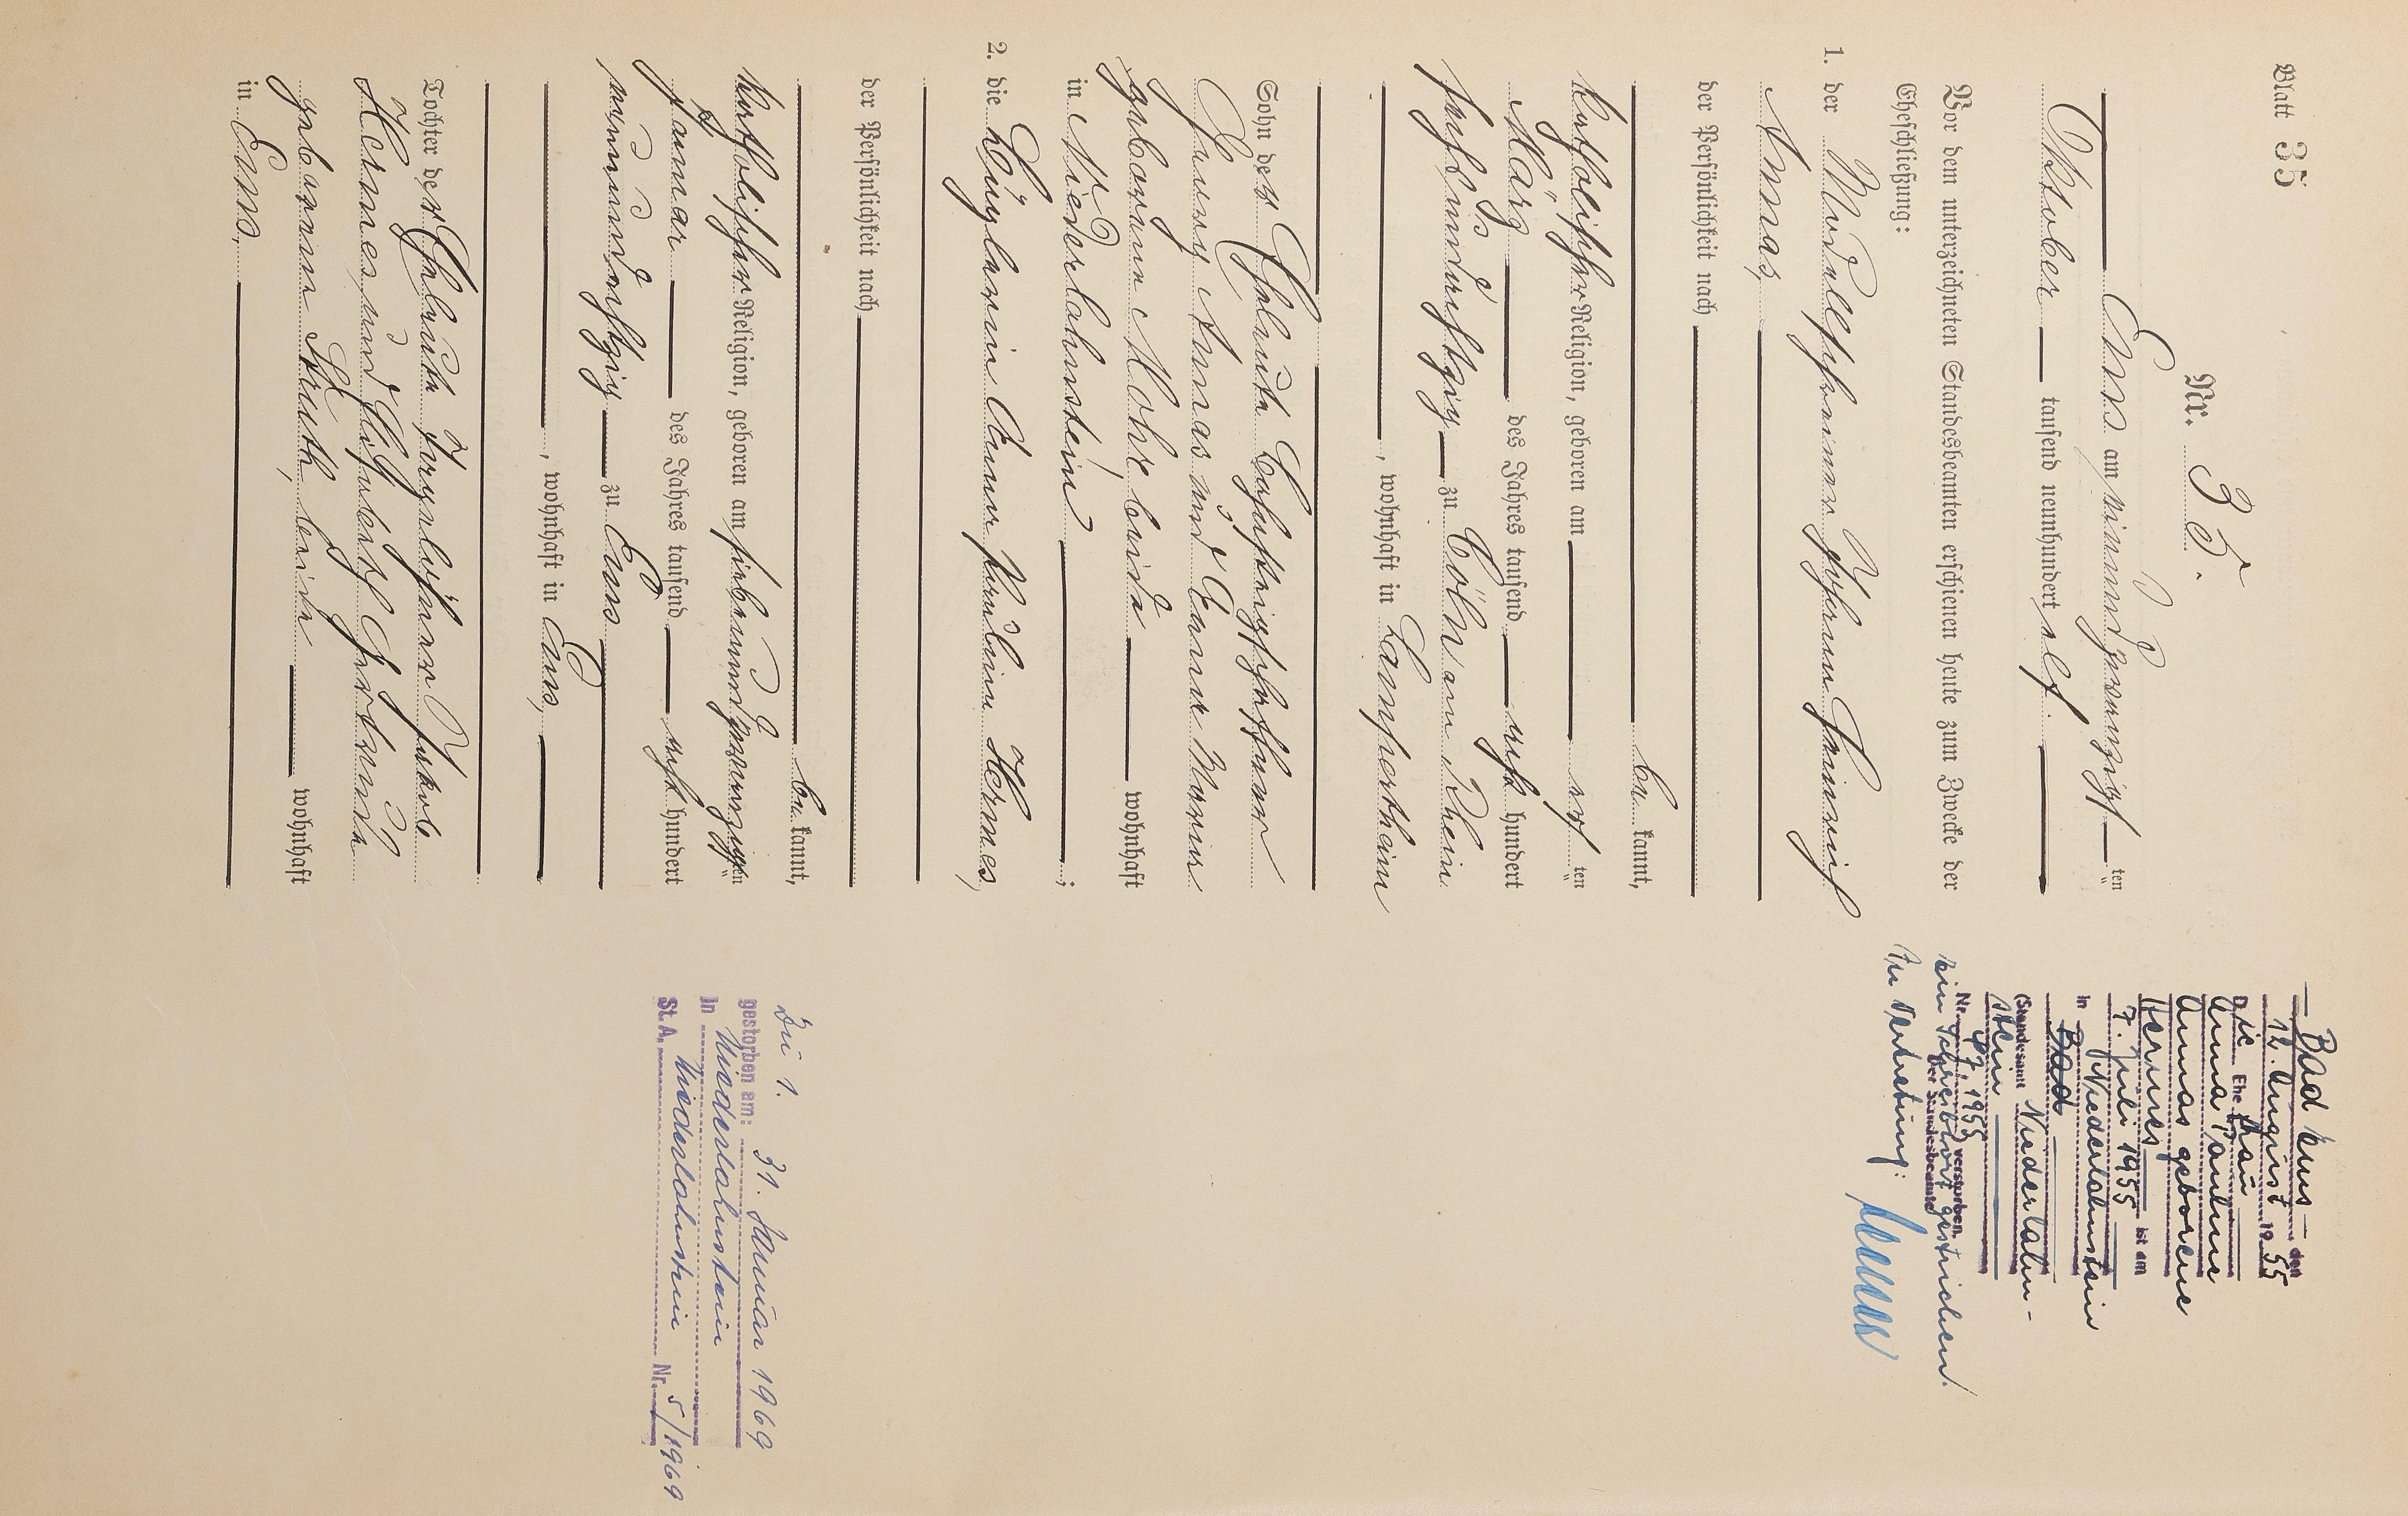 Blatt 35
Nr. 35.
Ems am einundzwanzigsten
Oktober tausend neunhundert elf.
Vor dem unterzeichneten Standesbeamten erschienen heute zum Zwecke der
Eheschließung:
1. der Modellschreiner Johann Heinrich
Annas,
der Persönlichkeit nach
be kannt,
katholischer Religion, geboren am ersten
März des Jahres tausend acht hundert
sechsundachtzig zu Cöln am Rhein
, wohnhaft in Lampertheim
Sohn der Eheleute
Georg Annas und Anna Maria
geborene Mohr beide wohnhaft
in Niederlahnstein;
2. die Büglerin Anna Paulina Hermes,
der Persönlichkeit nach
be kannt,
katholischer Religion, geboren am siebenundzwanzigsten
Januar des Jahres tausend acht hundert
neunundachtzig zu Ems
, wohnhaft in Ems,
Tochter der Eheleute Tagelöhner Jakob
Hermes und Elisabeth Gertrude
geborene Struth, beide wohnhaft
in Ems.
Bad Ems den
12. August 1955
Die Ehefrau
Anna Pauline
Annas geborene
Hermes ist am
7. Juli 1955
in Niederlahnstein
Bad
(Standesamt Niederlahn-
stein
Nr. 1955) verstorben.
Der Standesbeamte
ein Schreibwort gestrichen.
In Vertretung:
Zu 1.
gestorben am: 31. Januar 1969
in Niederlahnstein
St. A. Niederlahnstein Nr. 5/1969